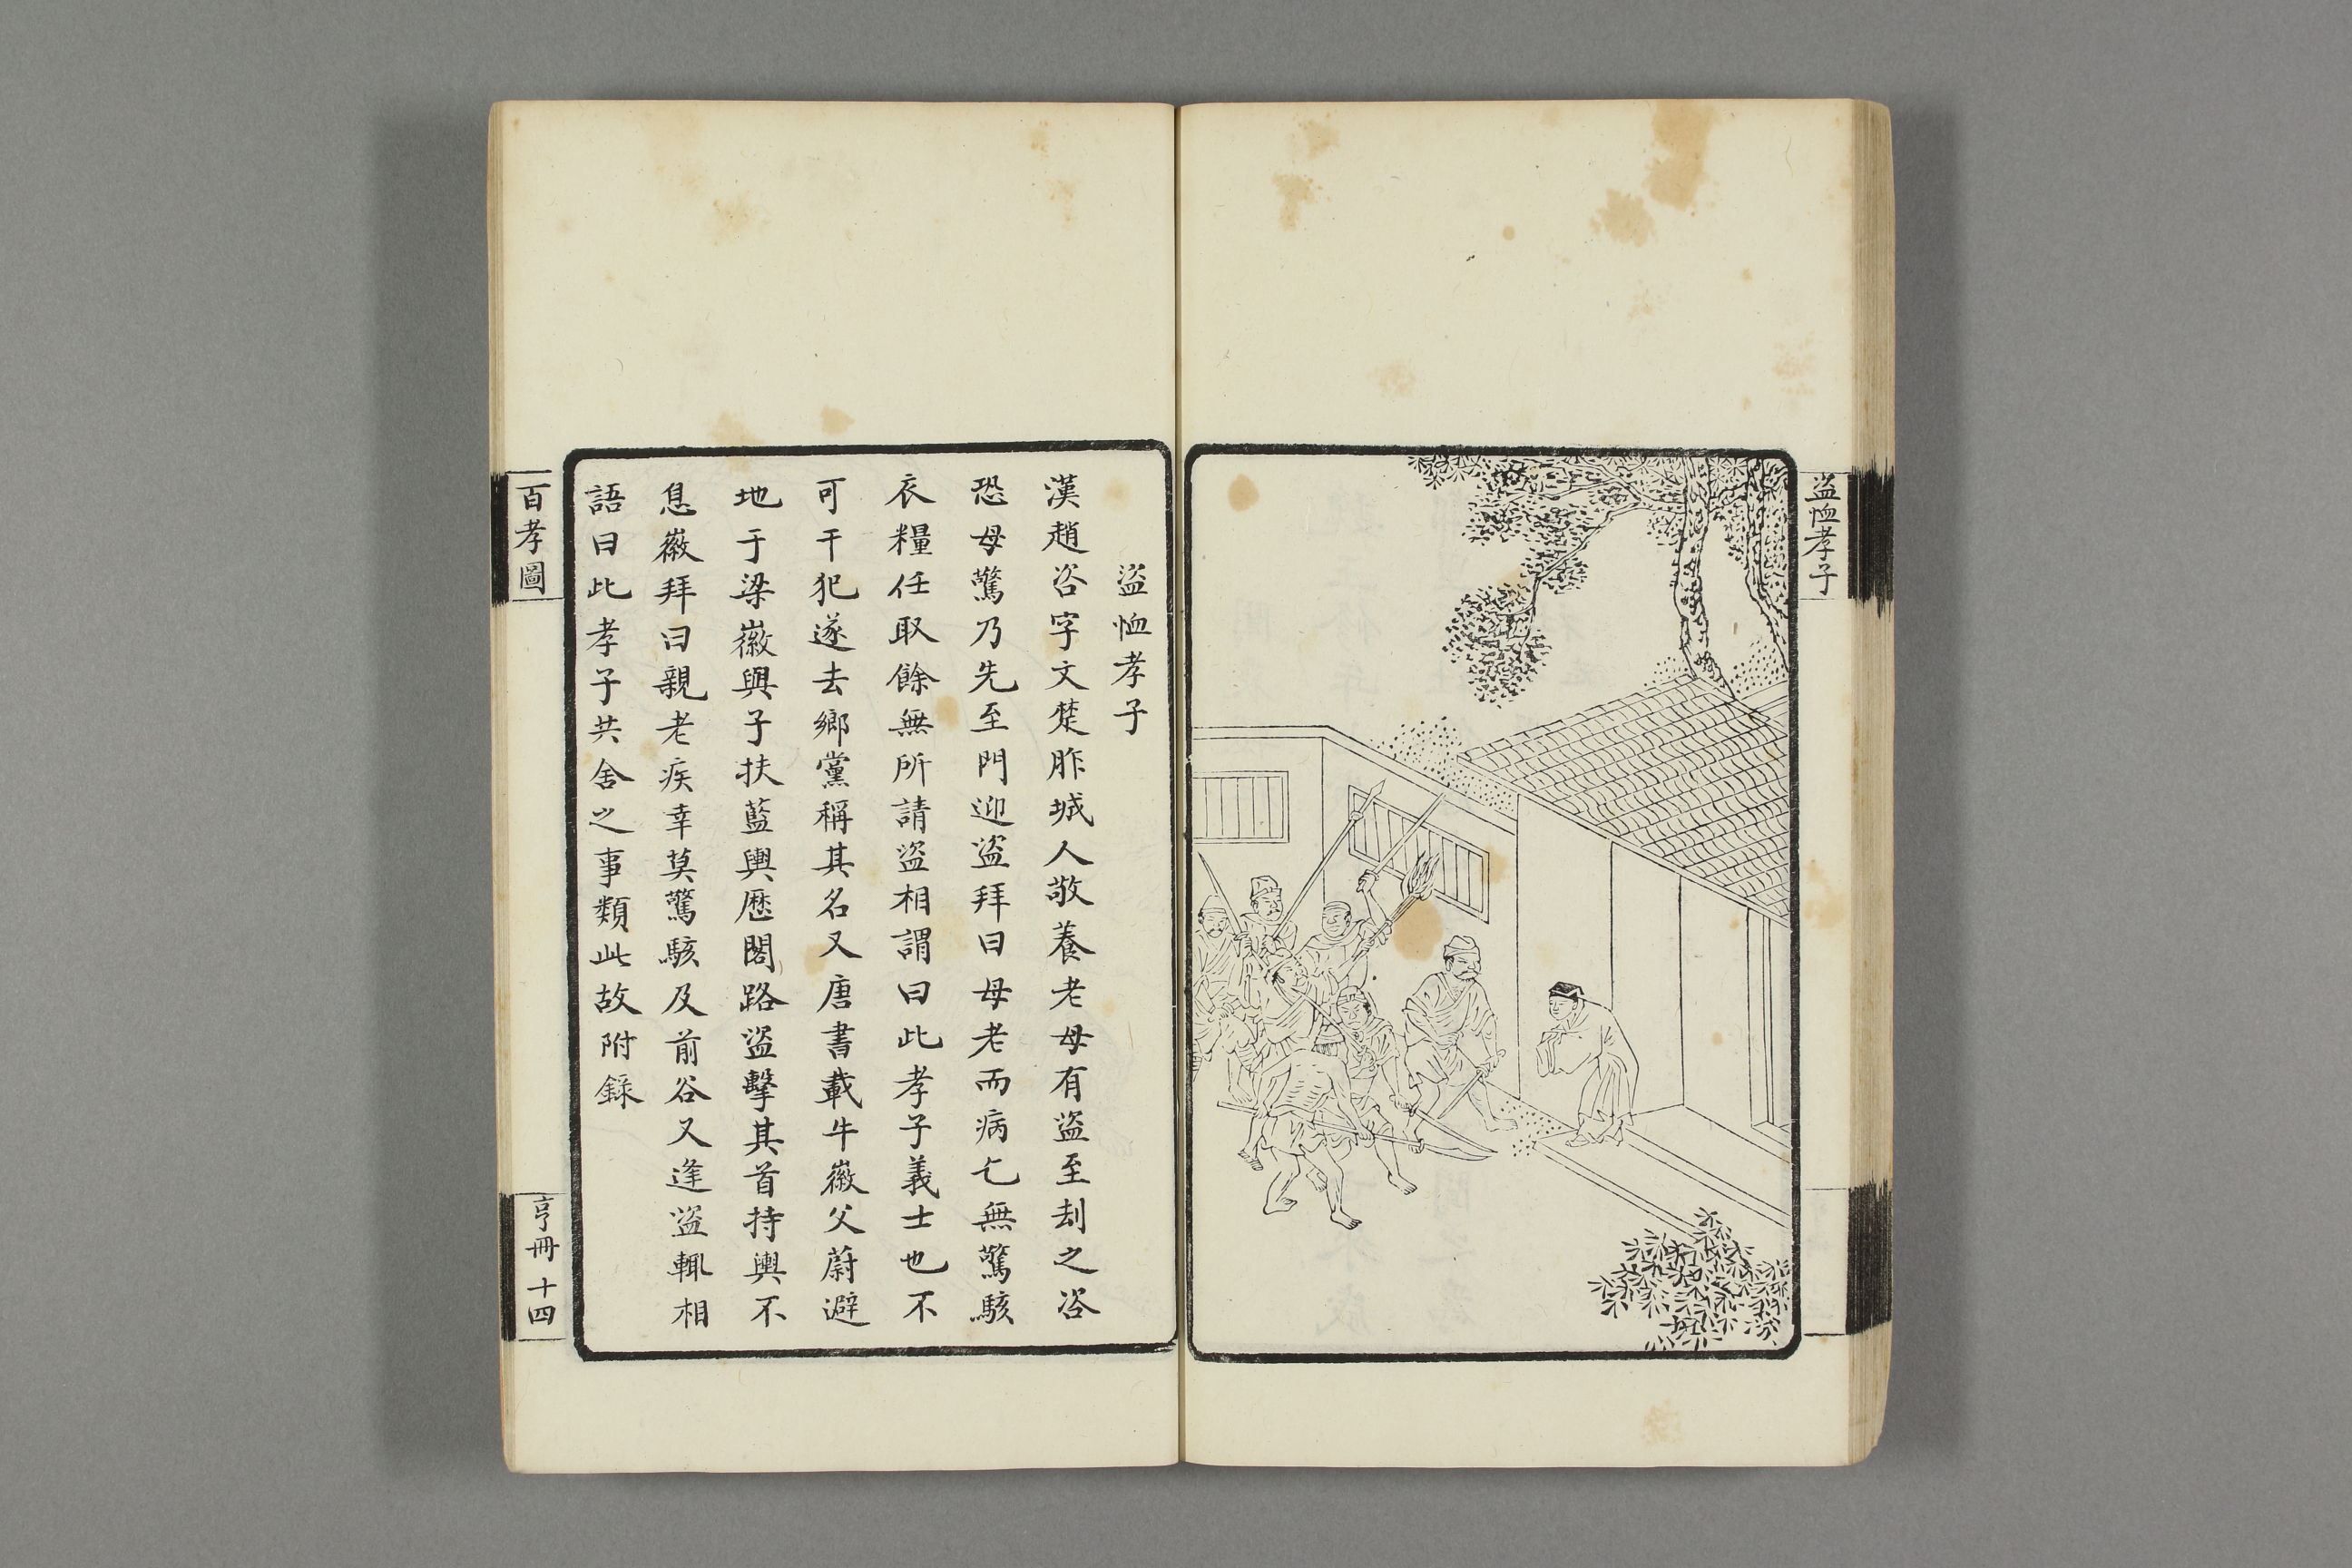 盜恤孝子
盜恤孝子
漢趙咨字文楚胙城人敬養老母有盜至刦之咨
恐母驚乃先至門迎盜拜曰母老而病乞無驚駭
衣糧任取餘無所請盜相謂曰此孝子義士也不
可干犯遂去鄉黨稱其名又唐書載牛徽父蔚避
地于梁徽與子扶藍輿歷閣路盜擊其首持輿不
息徽拜曰親老疾幸莫驚駭及前谷又逢盜輒相
語曰此孝子共舍之事類此故附錄
百孝圖
亨冊 十四